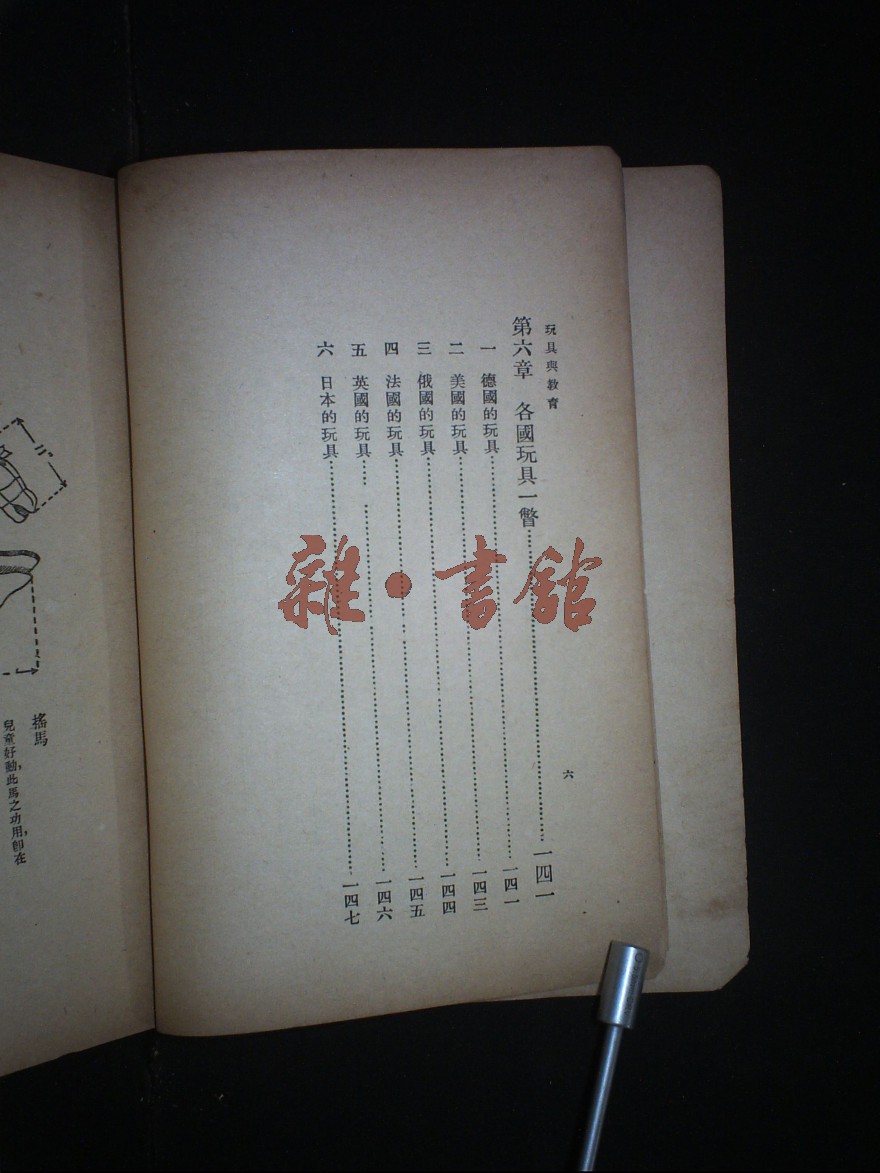 玩具與教育
第六章　各國玩具一瞥……一四一
一　德國的玩具……一四一
二　美國的玩具……一四三
三　俄國的玩具……一四四
四　法國的玩具……一四五
五　英國的玩具……一四六
六　日本的玩具……一四七
六
雜·書館
搖馬
兒童好動，此馬之功用，卽在